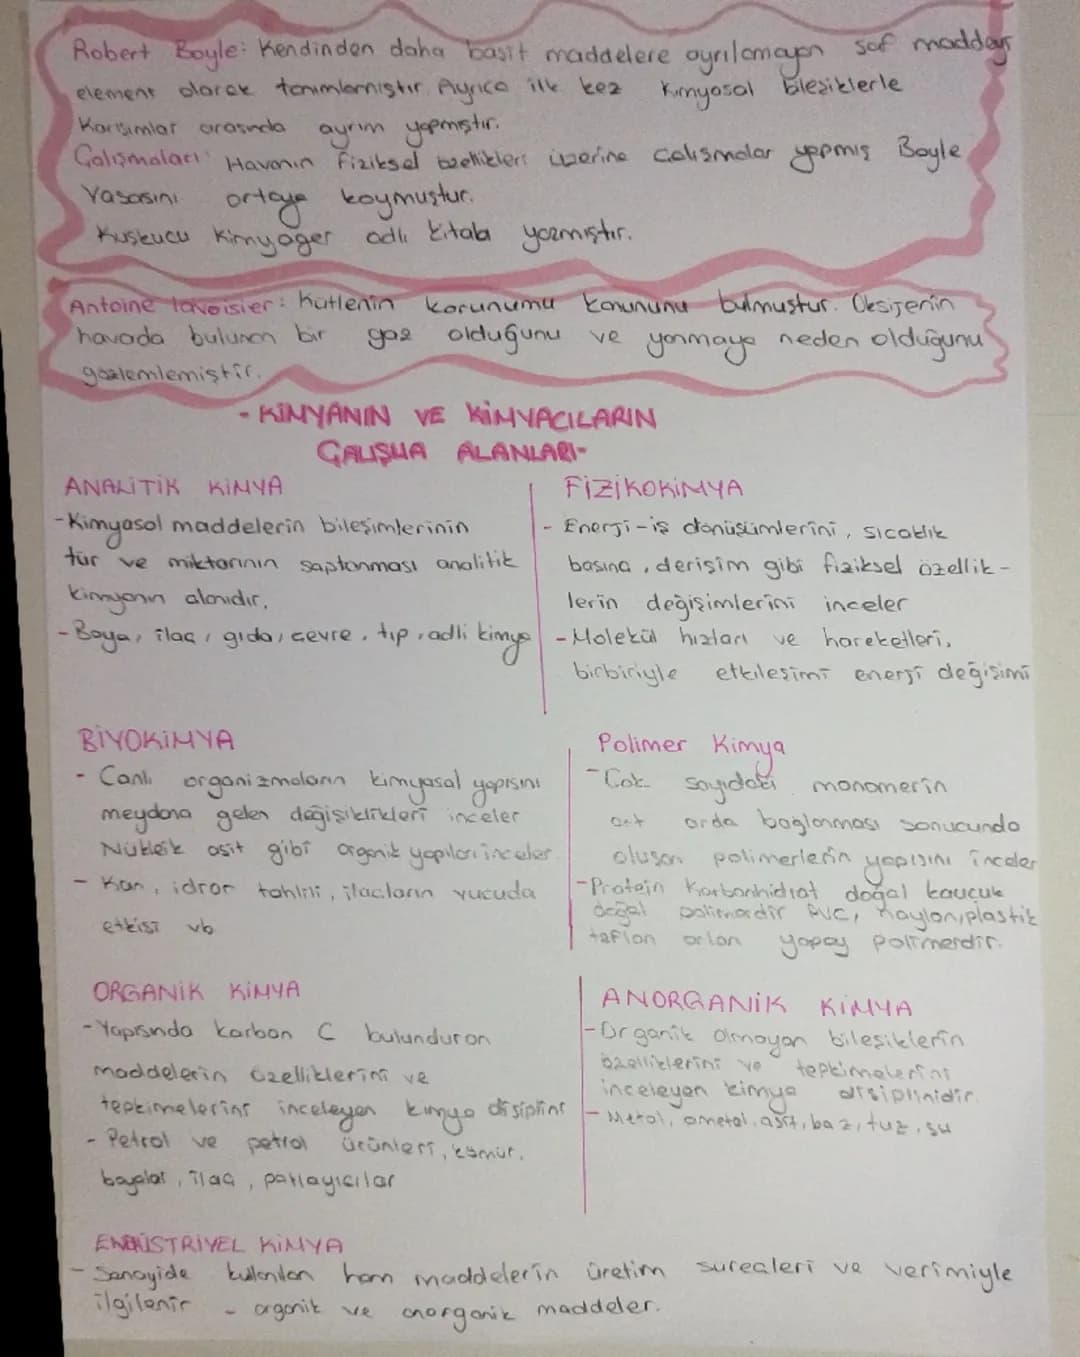 Robert Boyle: Kendinden daha basit maddelere ayrılamayan saf maddeyi
element olarak tanımlamıştır. Ayrıca ilk kez kimyasal bileşiklerle
Karışımlar arasında ayrım yapmıştır.
Çalışmaları: Havanın fiziksel özellikleri üzerine çalışmalar yapmış Boyle
Yasasını ortaya koymuştur.
Kuşkucu Kimyager adlı kitabı yazmıştır.
Antoine lavoisier: Kütlenin korunumu kanununu bulmuştur. Oksijenin
havada bulunan bir gaz olduğunu ve yanmaya neden olduğunu
gözlemlemiştir.
- KİMYANIN VE KİMYACILARIN
ÇALIŞMA ALANLARI-
ANALİTİK KİMYA
-Kimyasal maddelerin bileşimlerinin
tür ve miktarının saptanması analitik
kimyanın alanıdır.
-Boya, ilaç, gıda, çevre, tıp, adli kimya
FİZİKOKİMYA
- Enerji-iş dönüşümlerini, sıcaklık
basınç, derişim gibi fiziksel özellik-
lerin değişimlerini inceler
-Molekül hızları ve hareketleri,
birbiriyle etkileşimi enerji değişimi
BİYOKİMYA
- Canlı organizmaların kimyasal yapısını
meydana gelen değişiklikleri inceler
Nükleik asit gibi organik yapıları inceler
- Kan, idrar tahlili, ilaçların vucuda
etkisi vb
Polimer Kimya
-Çok sayıdaki monomerin
art arda bağlanması sonucunda
oluşan polimerlerin yapısını inceler
-Protein Karbonhidrat doğal kauçuk
doğal polimerdir PVC, naylon, plastik
teflon orlon yapay polimerdir.
ORGANİK KİMYA
-Yapısında karbon C bulunduran
maddelerin özelliklerini ve
tepkimelerini inceleyen kimya disiplini
- Petrol ve petrol ürünleri, kömür,
boyalar, ilaç, patlayıcılar
ANORGANİK KİMYA
-Organik olmayan bileşiklerin
özelliklerini ve tepkimelerini
inceleyen kimya disiplinidir.
- Metal, ametal, asit, baz, tuz, su
ENDÜSTRİYEL KİMYA
- Sanayide kullanılan ham maddelerin üretim süreçleri ve verimiyle
ilgilenir - organik ve anorganik maddeler.